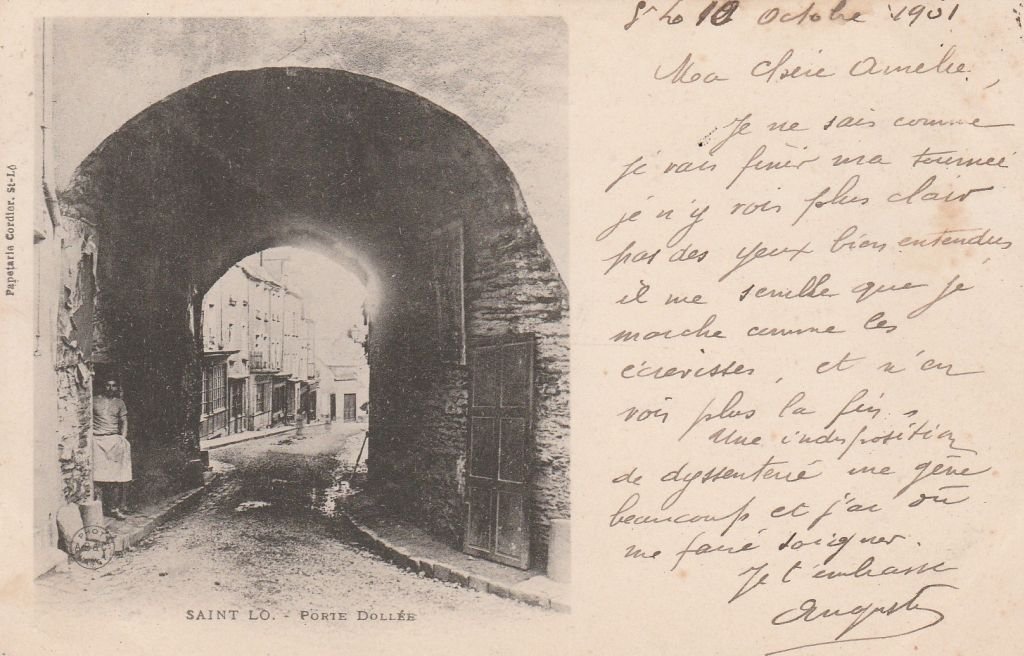 St Lo 10 Octobre 1901
Ma Chère Amélie,
Je ne sais comme
je vais finir ma tournée
je n'y vois plus clair
pas des yeux bien entendus
il me semble que je
marche comme les
écrevisses, et n'en
vois plus la fin.
Une indisposition
de dyssenterie me gêne
beaucoup et j'ai dû
me faire soigner.
Je t'embrasse
Auguste
Papeterie Cordier. St-Lô
SAINT LO. - PORTE DOLLÉE